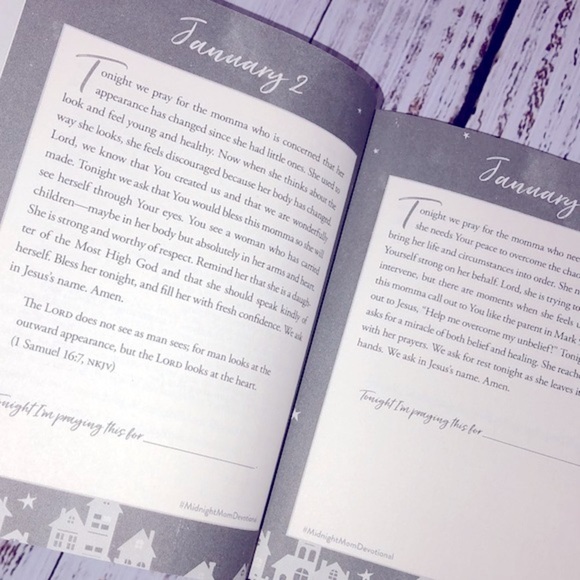 January 2
Tonight we pray for the momma who is concerned that her
appearance has changed since she had little ones. She used to
look and feel young and healthy. Now when she thinks about the
way she looks, she feels discouraged because her body has changed.
Lord, we know that You created us and that we are wonderfully
made. Tonight we ask that You would bless this momma so she will
see herself through Your eyes. You see a woman who has carried
children—maybe in her body but absolutely in her arms and heart.
She is strong and worthy of respect. Remind her that she is a daugh-
ter of the Most High God and that she should speak kindly of
herself. Bless her tonight, and fill her with fresh confidence. We ask
in Jesus's name. Amen.
The LORD does not see as man sees; for man looks at the
outward appearance, but the LORD looks at the heart.
(1 Samuel 16:7, NKJV)
Tonight I'm praying this for
#MidnightMomDevotional
January
Tonight we pray for the momma who
she needs Your peace to overcome the
bring her life and circumstances into order. She
Yourself strong on her behalf. Lord, she is trying
intervene, but there are moments when she feels
this momma call out to You like the parent in Mark
out to Jesus, "Help me overcome my unbelief!"
asks for a miracle of both belief and healing. She
with her prayers. We ask for rest tonight as she leaves
hands. We ask in Jesus's name. Amen.
Tonight I'm praying this for
#MidnightMomDevotional